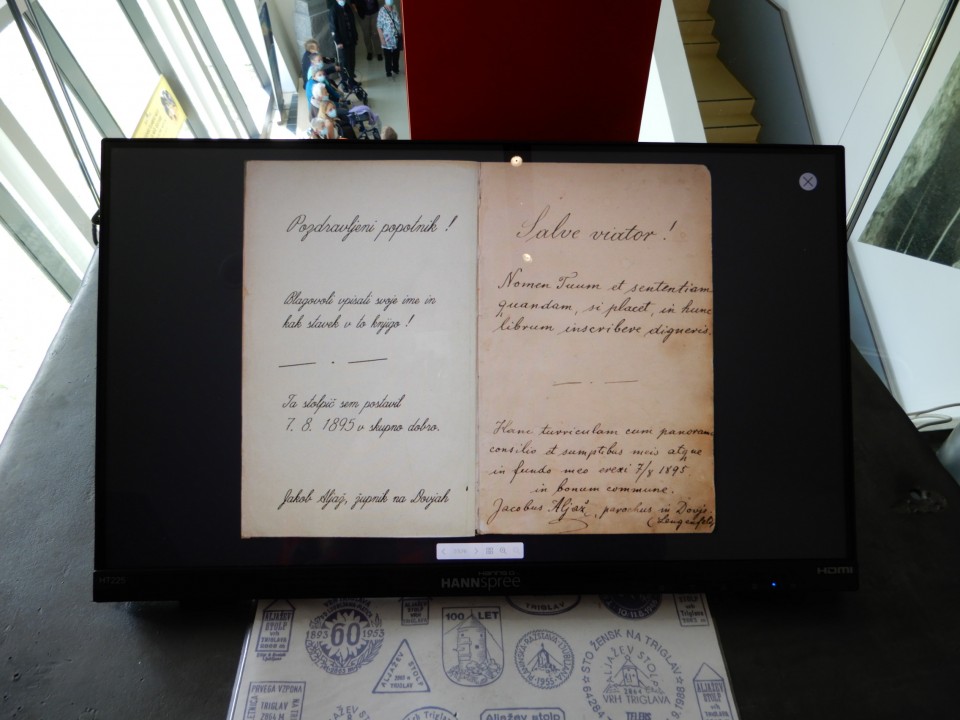 Pozdravljeni popotnik !
Blagovoli vpisati svoje ime in
kak stavek v to knjigo !
Ta stolpič sem postavil
7. 8. 1895 v skupno dobro.
Jakob Aljaž, župnik na Dovjah
Salve viator !
Nomen Tuum et sententiam
quandam, si placet, in hunc
librum inscribere digneris.
Hanc turriculam cum panoram
consilio et sumptibus meis atque
in fundo meo erexi 7/8 1895
in bonum commune.
Jacobus Aljaž, parochus in Dovje
(Lengenfeld)
HANNSPREE
HDMI
ALJAŽEV
STOLP
vrh
TRIGLAVA
1893 60 1953
ALJAŽEV
STOLP
TRIGLAV
100 LET
TRIGLAV
1955
STO ŽENSK NA TRIGLAV
ALJAŽEV STOLP
2864 m
VRH TRIGLAVA
PRVEGA VZPONA
TRIGLAV
2864 M
Triglav
Aljažev stolp
ALJAŽEV
STOLP
vrh
TRIGLAVA